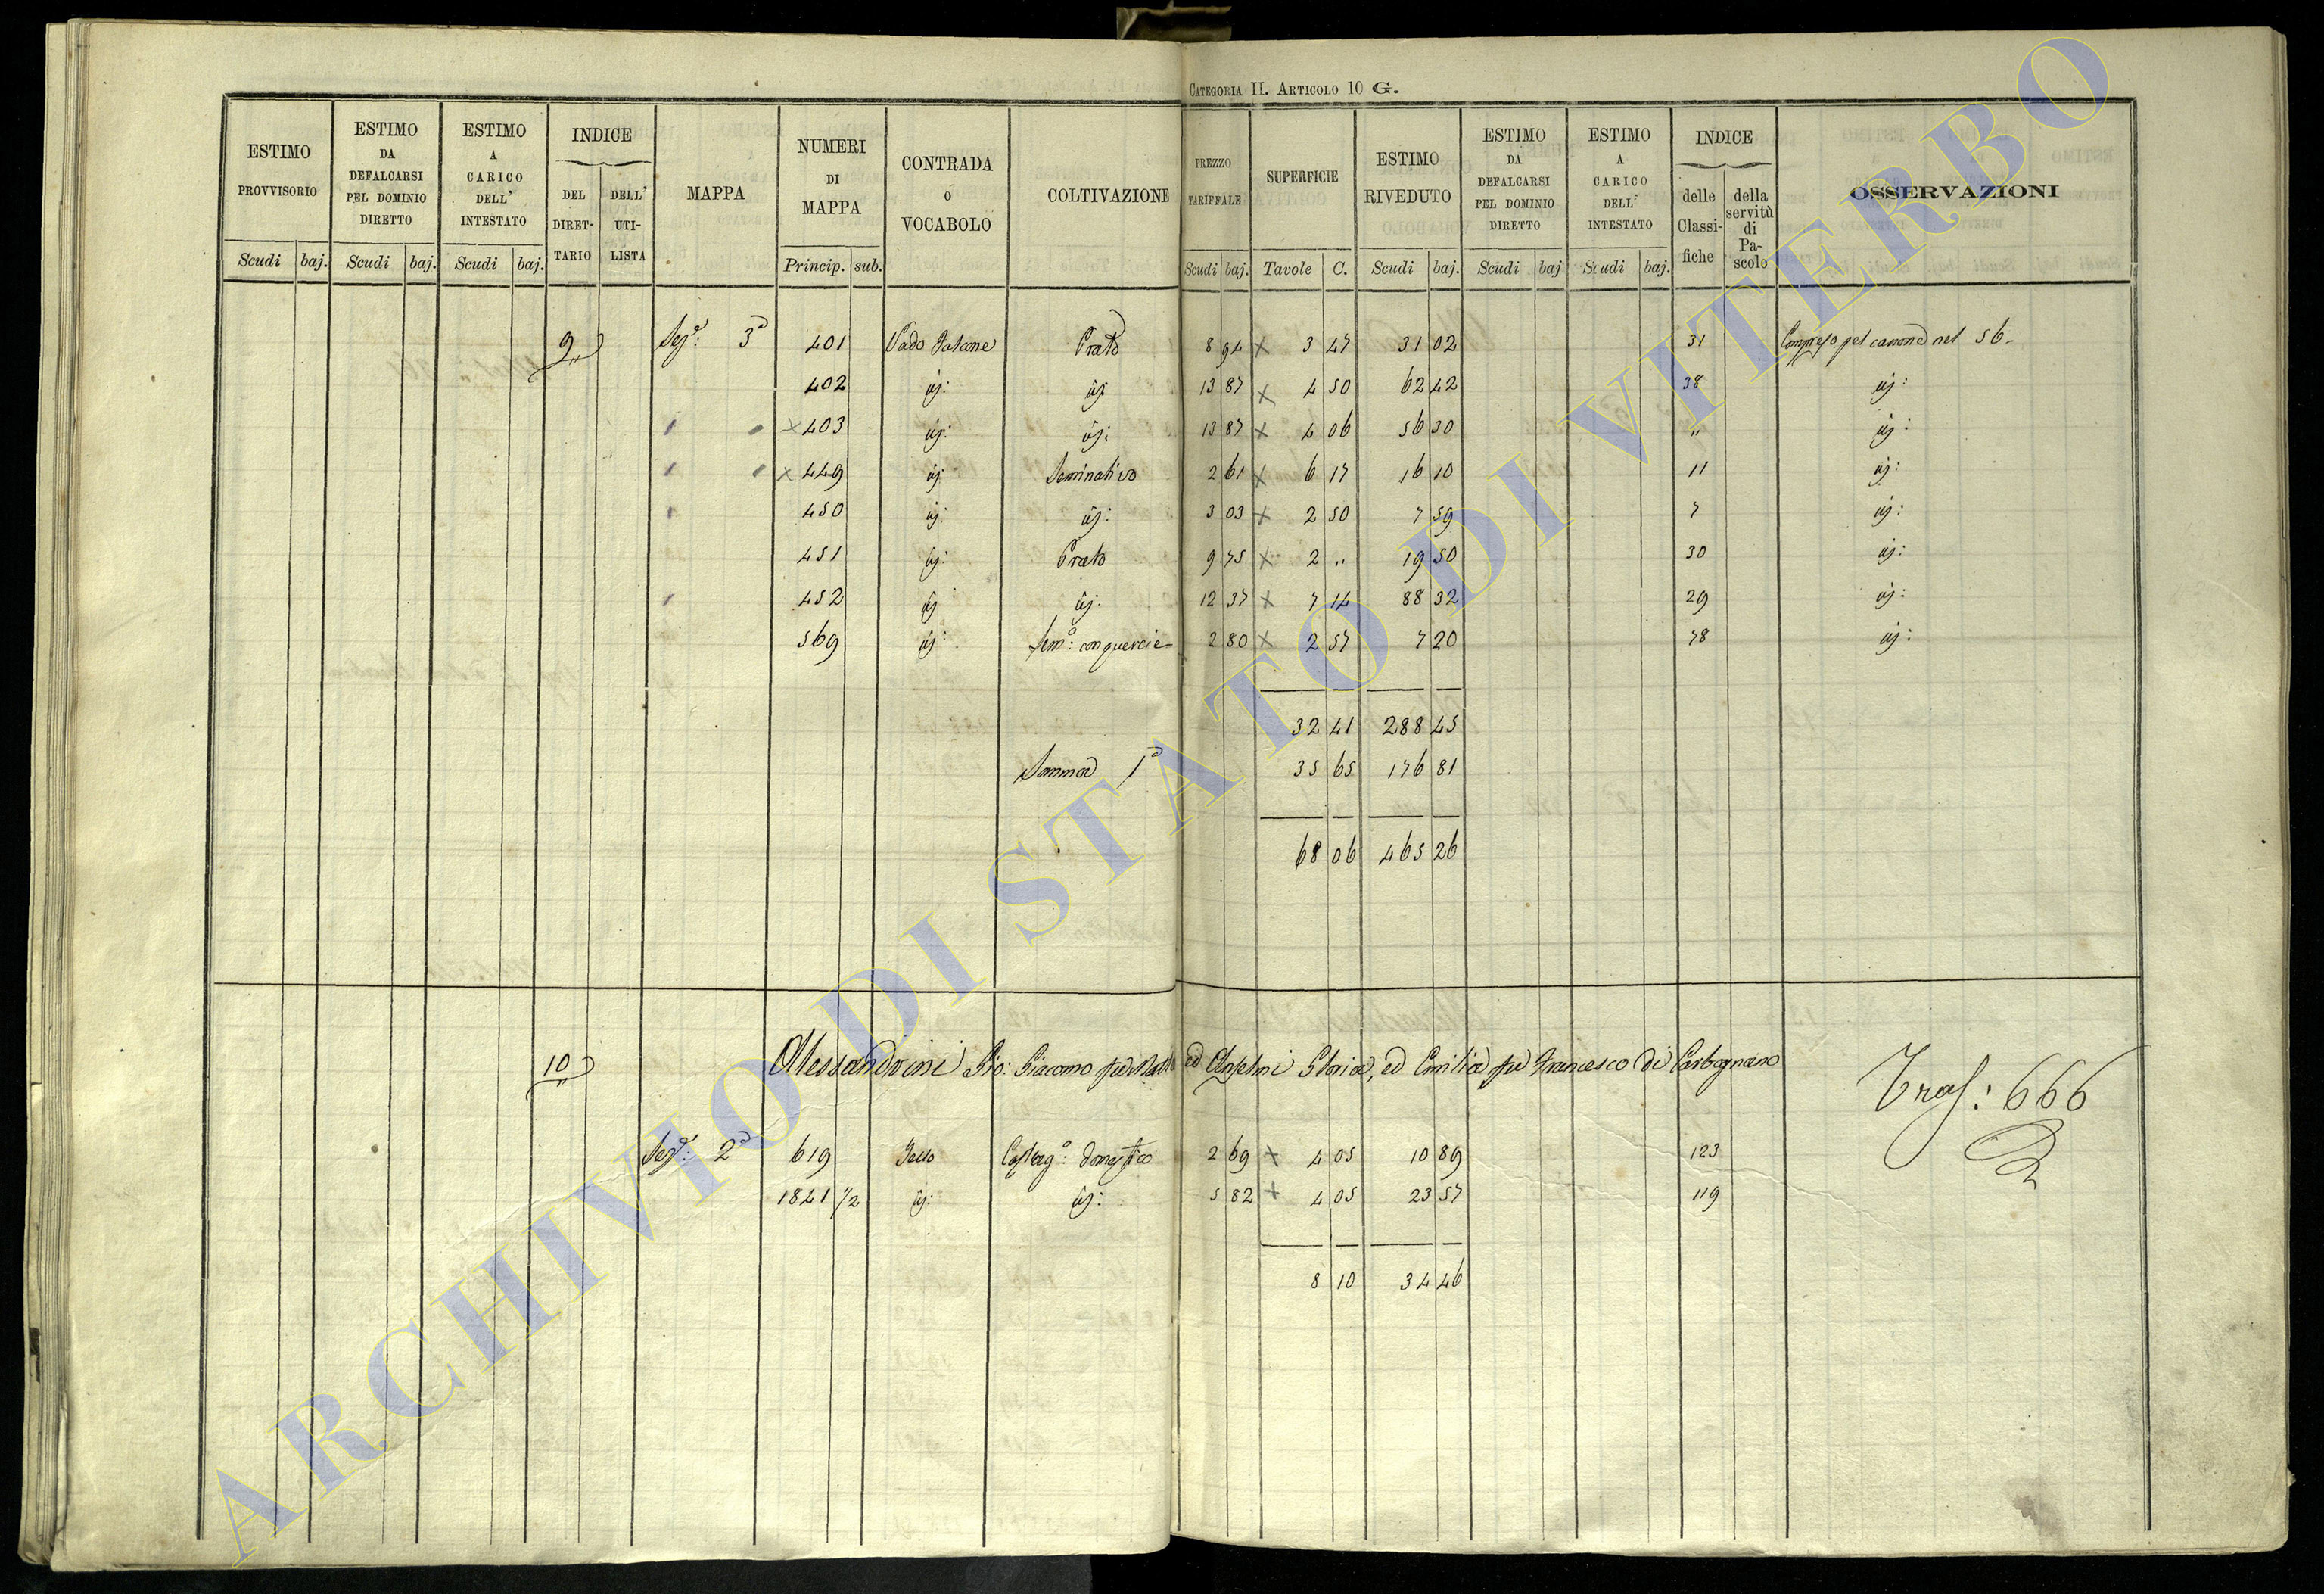 CATEGORIA II. ARTICOLO 10 G.
ESTIMO PROVVISORIO Scudi baj.
ESTIMO DA DEFALCARSI PEL DOMINIO DIRETTO Scudi baj.
ESTIMO A CARICO DELL' INTESTATO Scudi baj.
INDICE DEL DIRETTARIO DELL' UTILISTA
MAPPA
NUMERI DI MAPPA Princip. sub.
CONTRADA o VOCABOLO
COLTIVAZIONE
PREZZO TARIFFALE Scudi baj.
SUPERFICIE Tavole C.
ESTIMO RIVEDUTO Scudi baj.
ESTIMO DA DEFALCARSI PEL DOMINIO DIRETTO Scudi baj
ESTIMO A CARICO DELL' INTESTATO Scudi baj.
INDICE delle Classifiche della servitù di Pascolo
OSSERVAZIONI
9 Sez.e: 3a 401 Vado Prato 8 94 x 3 47 31 02 31 Compreso pel canone nel 56
402 id: id: 13 87 x 4 50 62 42 38 id:
x 403 id: id: 13 87 x 4 06 56 30 " id:
x 449 id: Seminativo 2 61 x 6 17 16 10 11 id:
450 id: id: 3 03 x 2 50 7 59 7 id:
451 id: Prato 9 75 x 2 " 19 50 30 id:
452 id: id: 12 37 x 7 14 88 32 29 id:
569 id: Sem.o: con quercie 2 80 x 2 57 7 20 78 id:
32 41 288 45
Somma 1a 35 65 176 81
68 06 465 26
10 Alessandrini Gio: Giacomo fu ed Anselmi Gloria, ed Emilia fu Francesco di Carbognano
Tras: 666
Sez.e: 2a 619 Castag.o: domestico 2 69 x 4 05 10 89 123
1841 1/2 id: id: 5 82 x 4 05 23 57 119
8 10 34 46
ARCHIVIO DI STATO DI VITERBO